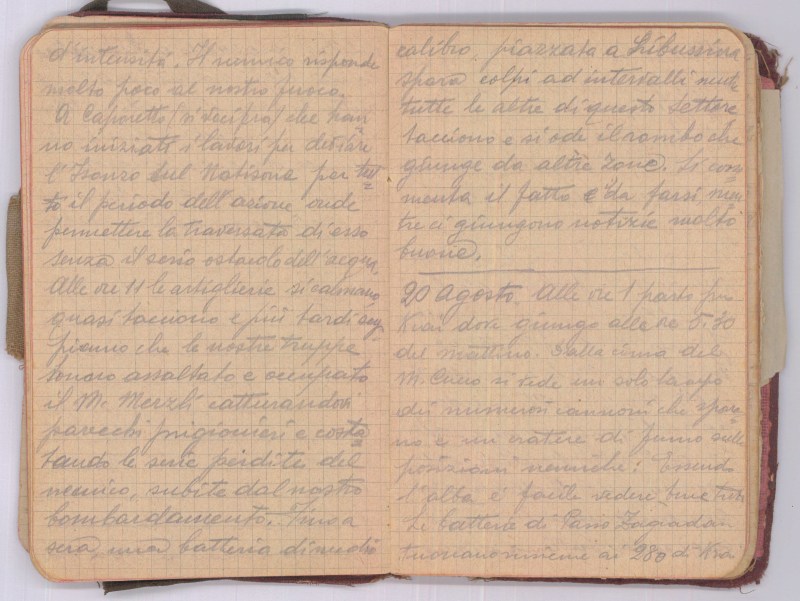 d'intensità. Il nemico risponde
molto poco al nostro fuoco.
A Caporetto (si decifra) che han
no iniziati i lavori per deviare
l'Isonzo sul Natisone per tut
to il periodo dell'azione onde
permettere la traversata di esso
senza il serio ostacolo dell'acqua.
Alle ore 11 le artiglierie si calmano,
quasi tacciono e più tardi sap
piamo che le nostre truppe
hanno assaltato e occupato
il M. Merzli catturandovi
parecchi prigionieri e costa
tando le serie perdite del
nemico, subite dal nostro
bombardamento. Fino a
sera, una batteria di medio
calibro, piazzata a Libussina
spara colpi ad intervalli mentre
tutte le altre di questo settore
tacciono e si ode il rombo che
giunge da altre zone. Si com
menta il fatto e da farsi men
tre ci giungono notizie molto
buone.
20 Agosto. Alle ore 1 parto per
Krai dove giungo alle ore 5.30
del mattino. Dalla cima del
M. Cucco si vede un solo lampo
dei numerosi cannoni che spara
no e un cratere di fumo sulle
posizioni nemiche. Essendo
l'alba è facile vedere bene tutto
Le batterie di Passo Zagradan
tuonano insieme ai 280 di Krai